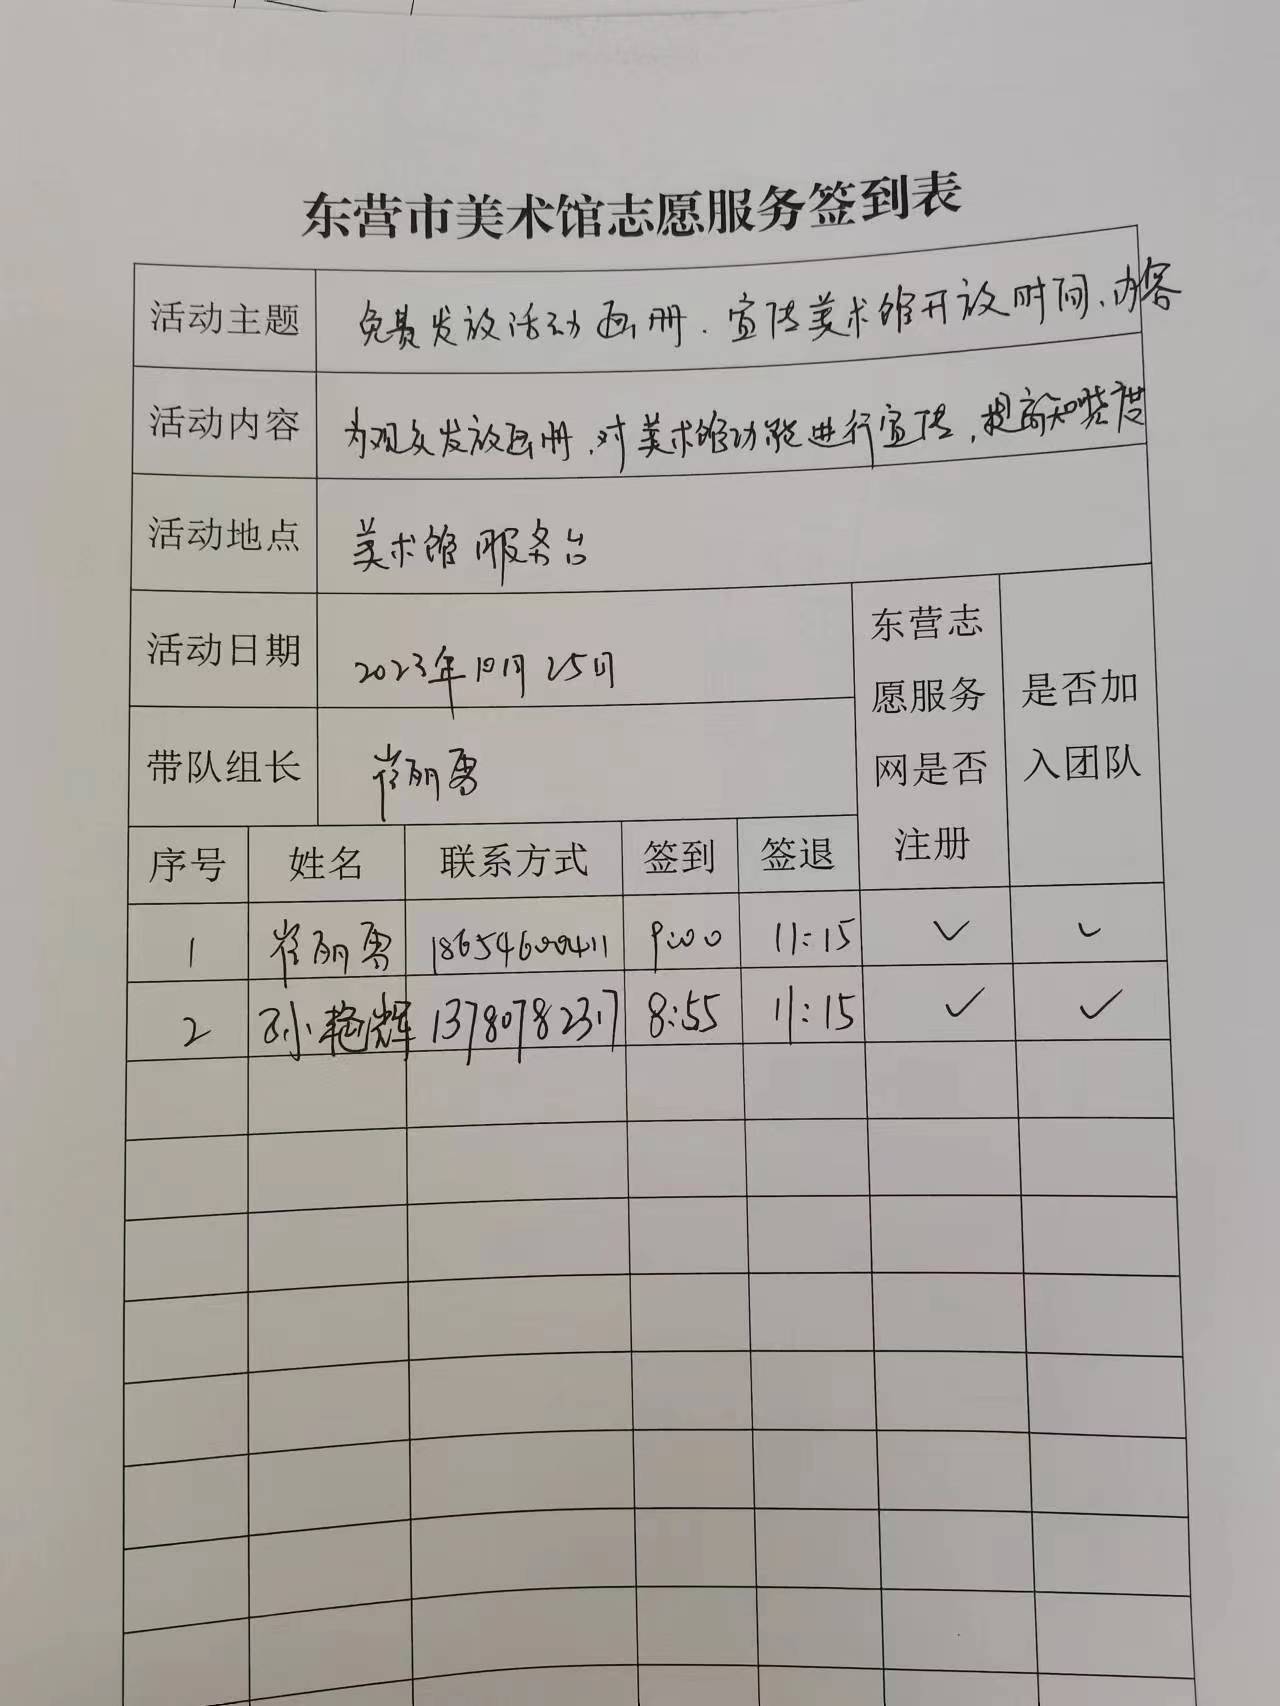 东营市美术馆志愿服务签到表
活动主题 免费发放活动画册、宣传美术馆开放时间、内容
活动内容 为观众发放画册、对美术馆功能进行宣传，提高知晓度
活动地点 美术馆服务台
活动日期 2023年10月25日
带队组长 崔丽雪
东营志愿服务网是否注册
是否加入团队
序号 姓名 联系方式 签到 签退
1 崔丽雪 18654600411 9:00 11:15 ✓ ✓
2 孙艳辉 13780782317 8:55 11:15 ✓ ✓